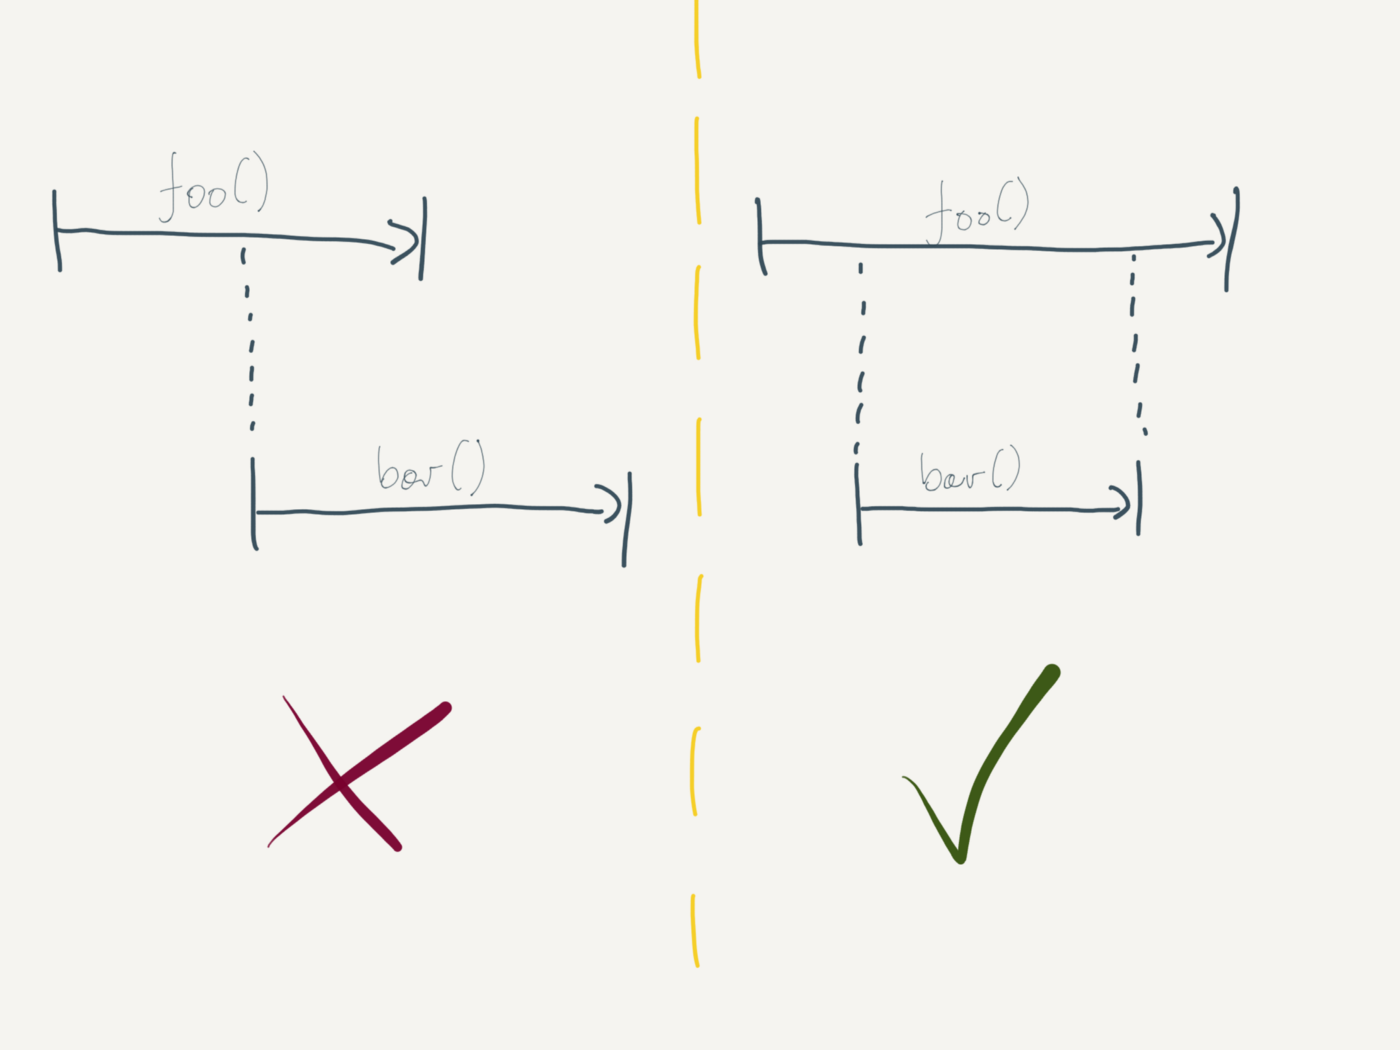 foo()
bar()
foo()
bar()